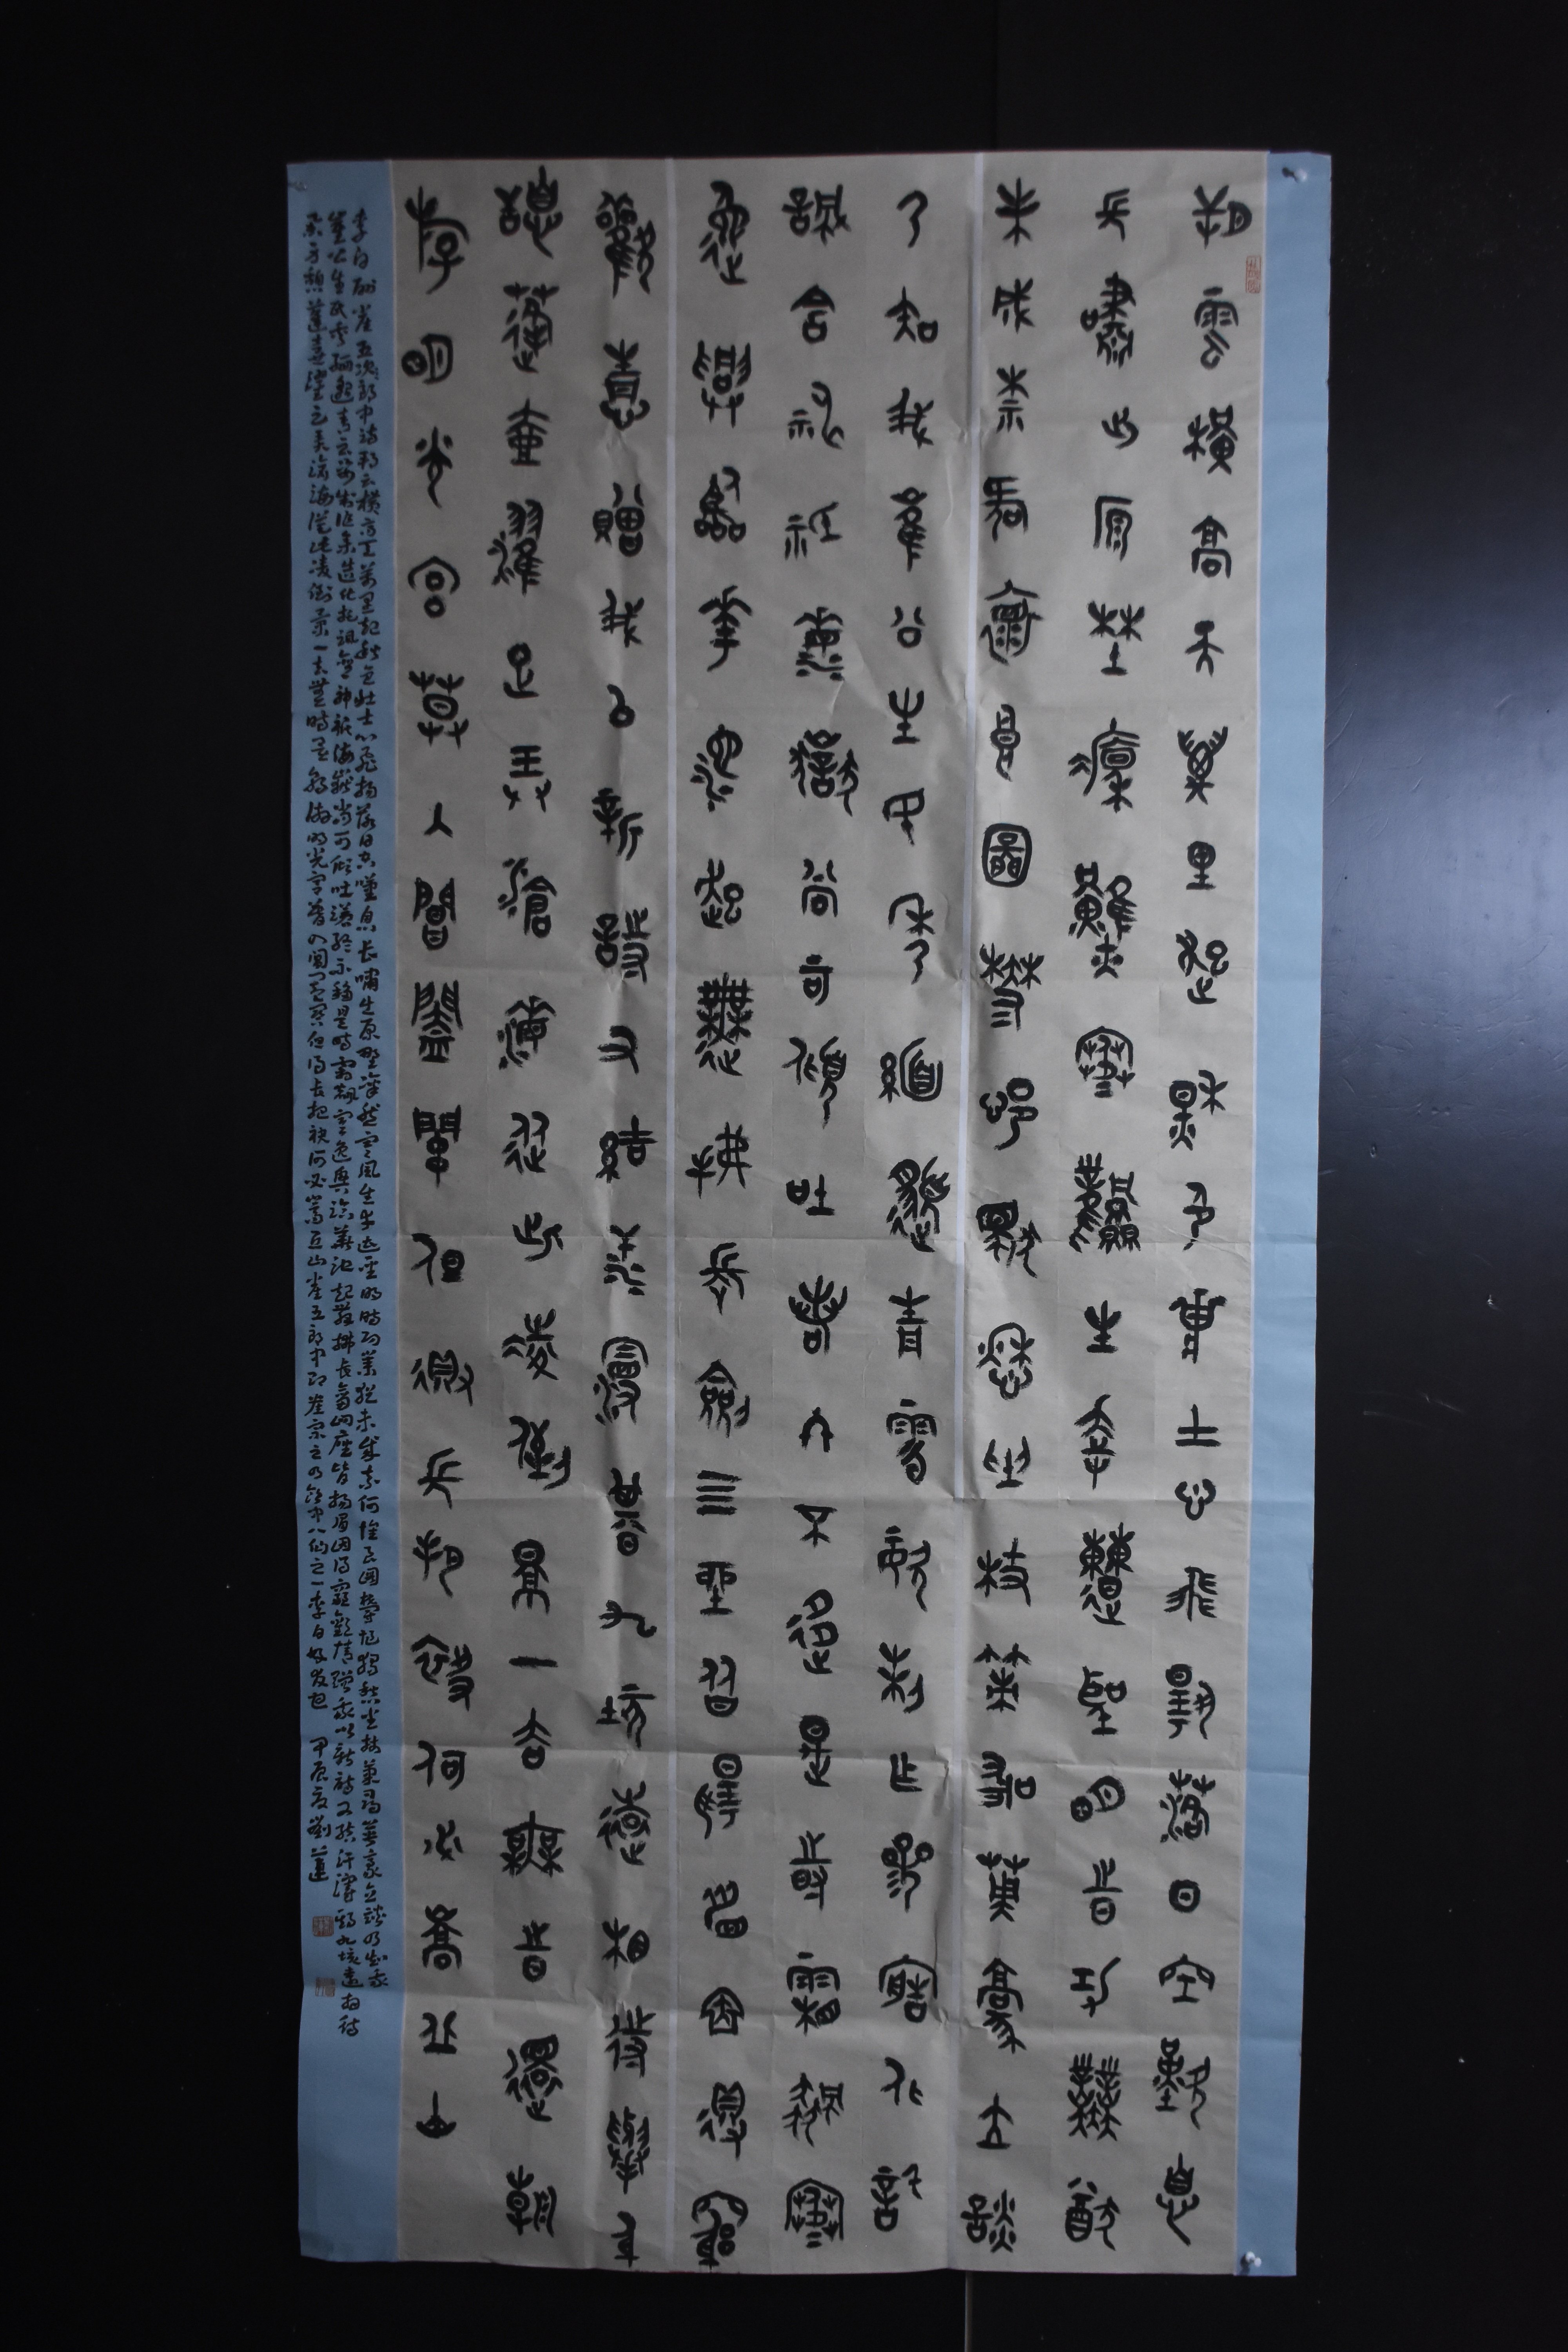 朔雲橫高天萬里起秋色壯士心飛揚落日空歎息
長嘯出原野凜然寒風生幸遭聖明時功業猶
未成柰何懷良圖鬱悒獨愁坐杖策尋英豪立談
乃知我崔公生民秀緬邈青雲姿制作參造化託
諷含神祇海嶽尚可傾吐諾終不移是時霜飆寒
逸興臨華池起舞拂長劍四座皆揚眉因得窮
歡情贈我以新詩又結汗漫期九垓遠相待舉身
憩蓬壺濯足弄滄海從此凌倒景一去無時還朝
游明光宮暮入閶闔關但得長把袂何必嵩丘山
李白酬崔五郎中詩朔云橫高天萬里起秋色壯士心飛揚落日空嘆息長嘯出原野凜然寒風生幸遭聖明時功業猶未成柰何懷良圖鬱悒獨愁坐杖策尋英豪立談乃知我
崔公生民秀緬邈青云姿制作參造化託諷含神祇海嶽尚可傾吐諾終不移是時霜飆寒逸興臨華池起舞拂長劍四座皆揚眉因得窮歡情贈我以新詩又結汗漫期九垓遠相待
舉身憩蓬壺濯足弄滄海從此凌倒景一去無時還朝游明光宮暮入閶闔關但得長把袂何必嵩丘山崔五郎中即崔宗之乃飲中八仙之一李白好友也 甲辰夏劉蓮